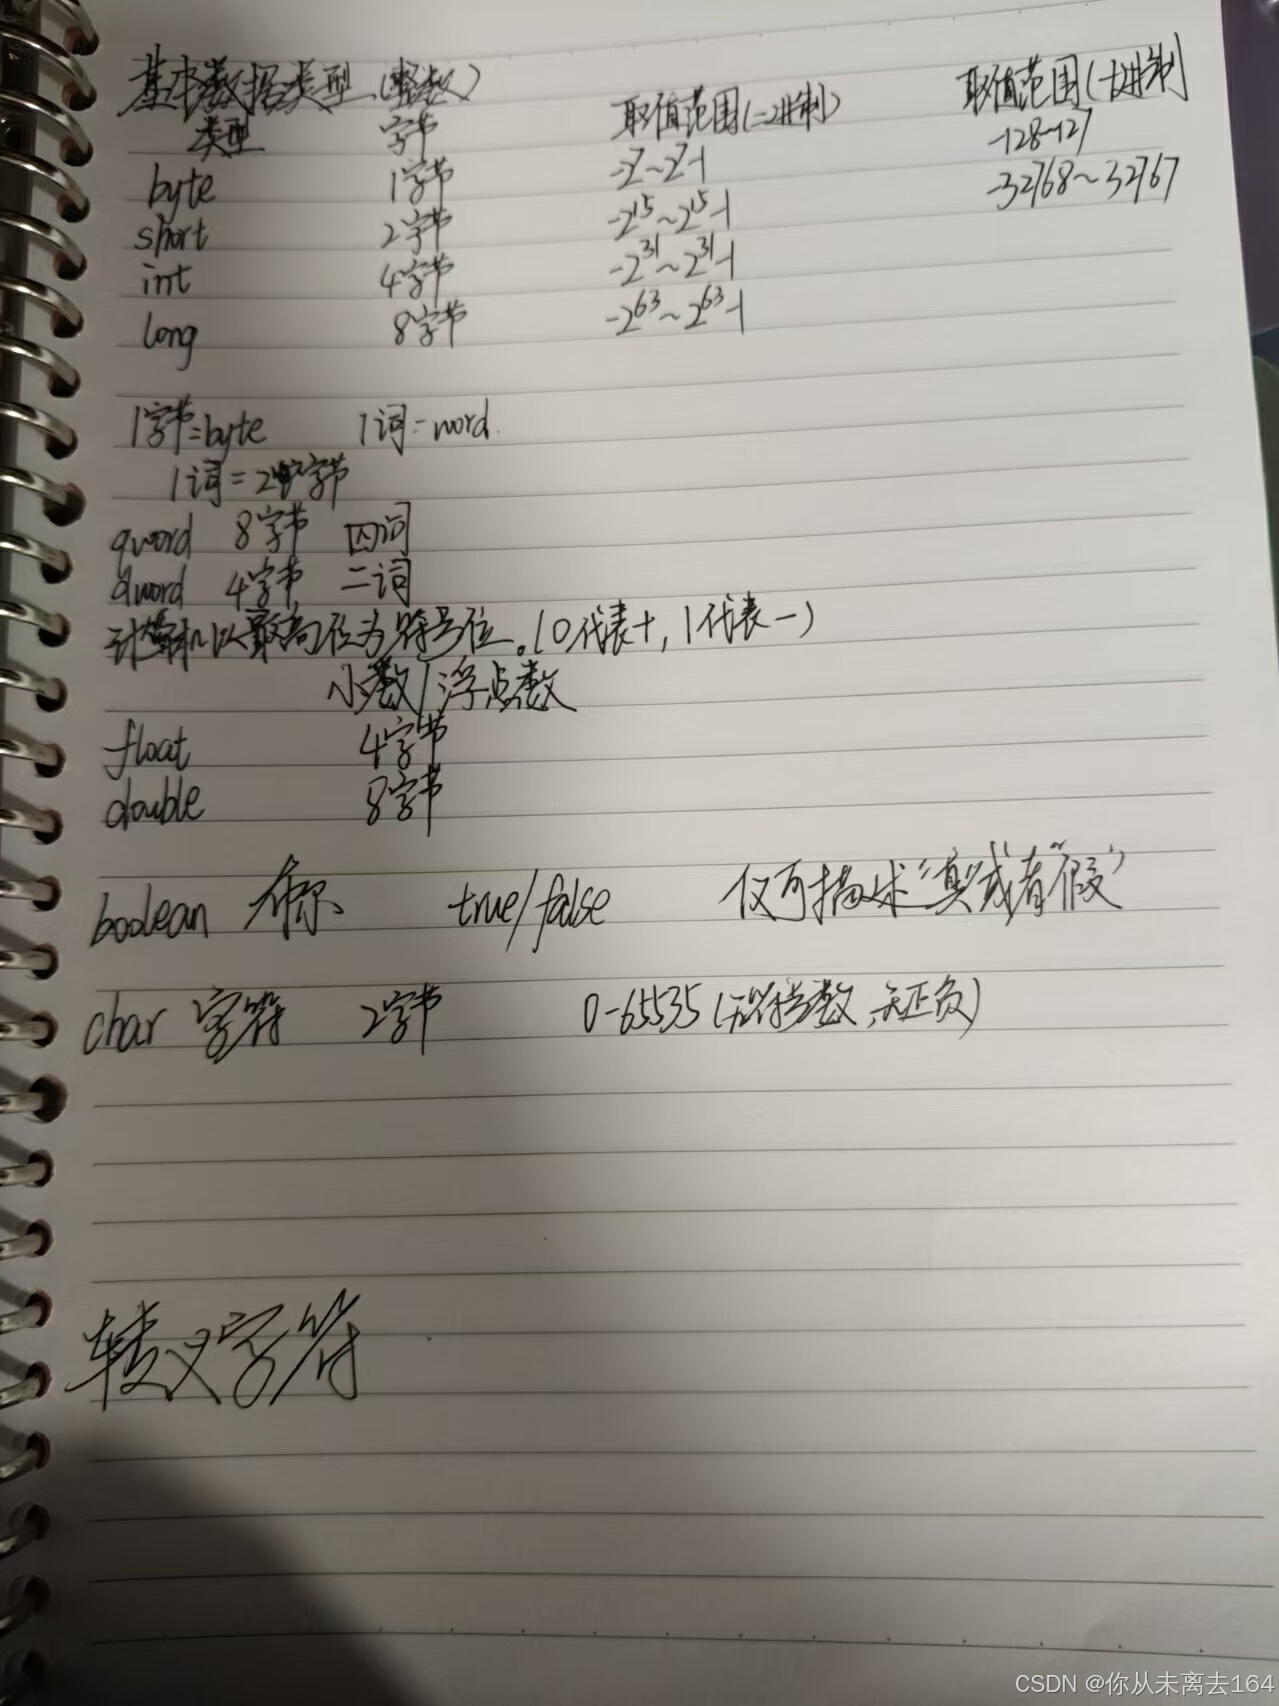 基本数据类型(整数)
类型 字节 取值范围(二进制) 取值范围(十进制
byte 1字节 -2⁷~2⁷-1 -128~127
short 2字节 -2¹⁵~2¹⁵-1 -32768~32767
int 4字节 -2³¹~2³¹-1
long 8字节 -2⁶³~2⁶³-1
1字节=byte 1词=word.
1词=2字节
qword 8字节 四词
dword 4字节 二词
计算机以最高位为符号位。(0代表+,1代表-)
小数/浮点数
float 4字节
double 8字节
boolean 布尔 true/false 仅可描述“真”或者“假”
char 字符 2字节 0-65535(无符号数,无正负)
转义字符
CSDN @你从未离去164